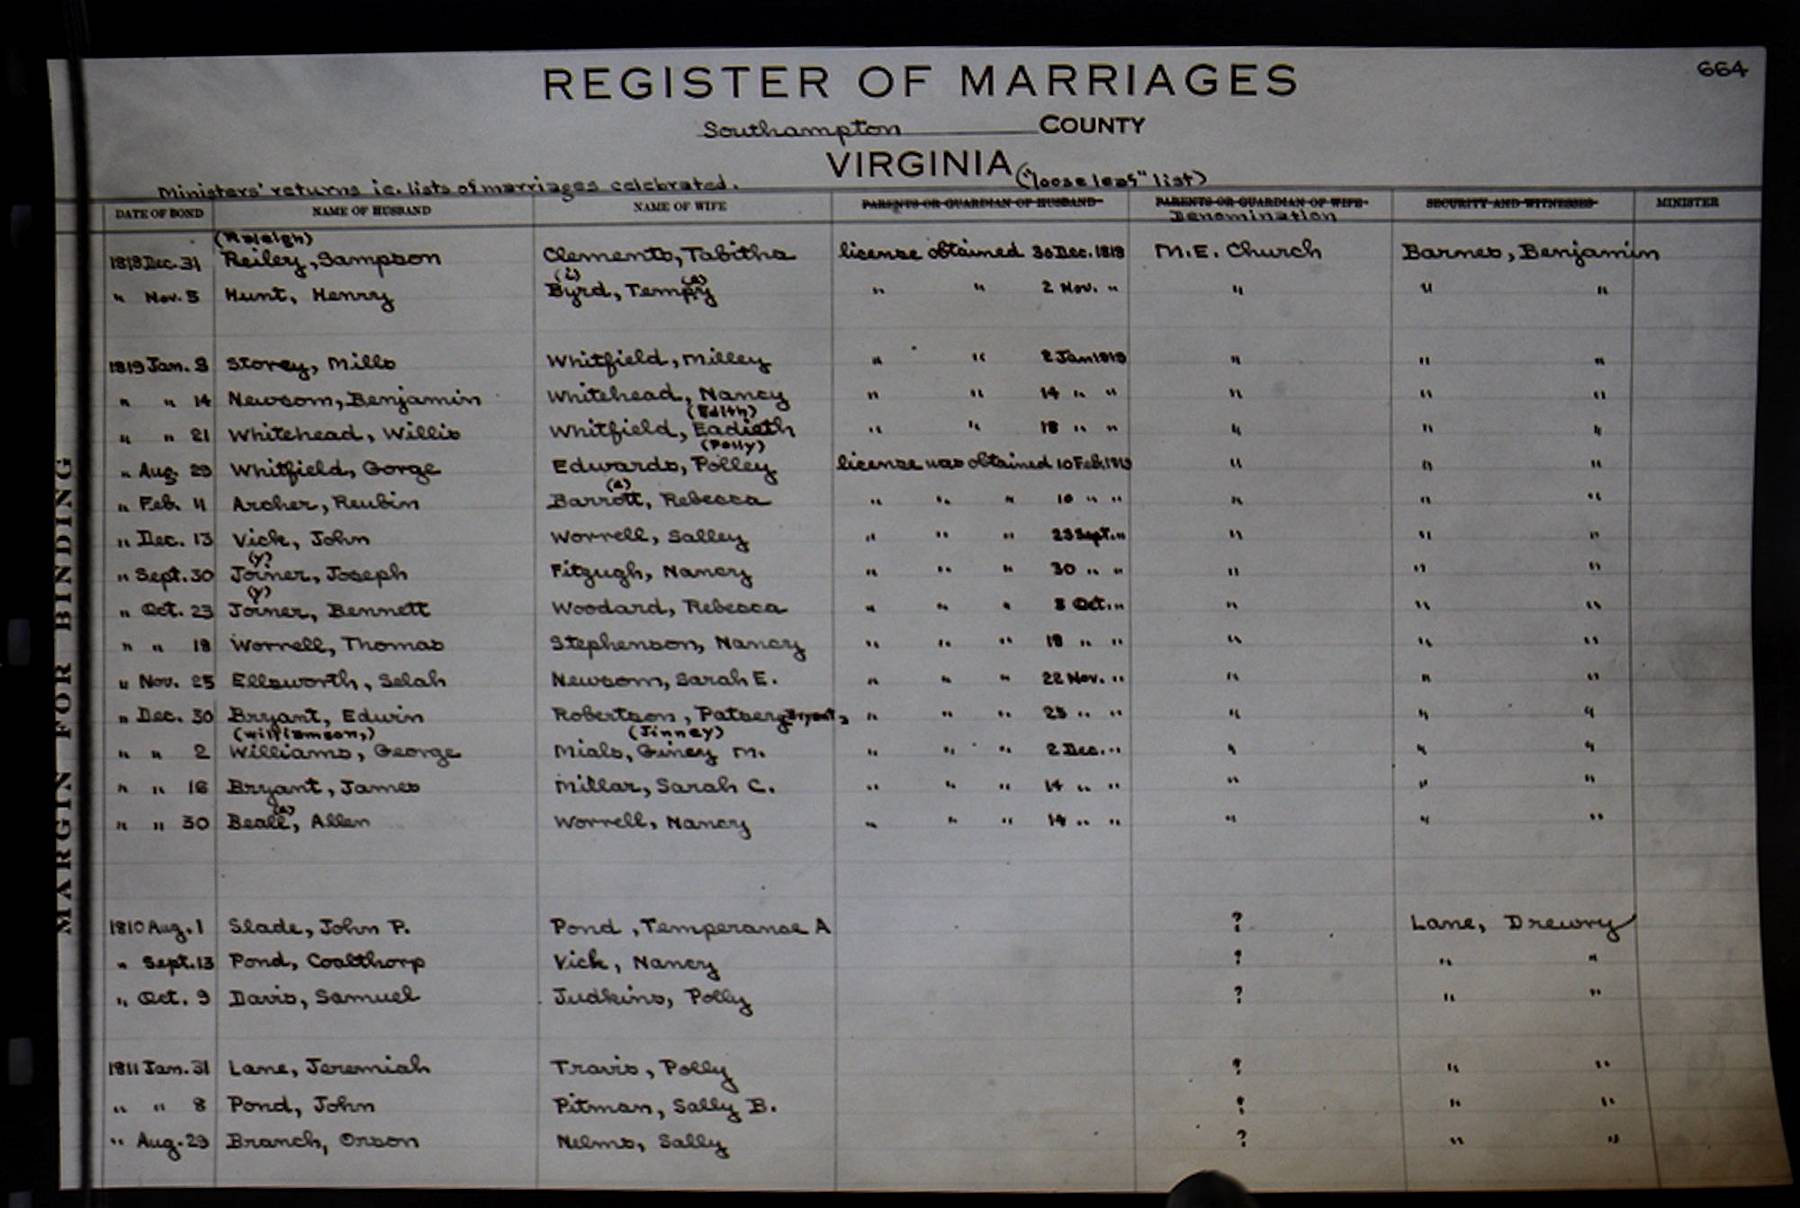 664
REGISTER OF MARRIAGES
Southampton COUNTY
VIRGINIA ("loose leaf" list)
Ministers' returns i.e. lists of marriages celebrated.
DATE OF BOND NAME OF HUSBAND NAME OF WIFE PARENTS OR GUARDIAN OF HUSBAND PARENTS OR GUARDIAN OF WIFE SECURITY AND WITNESSES MINISTER
Denomination
(Raleigh)
1818 Dec. 31 Reiley, Sampson Clements, Tabitha license obtained 30 Dec. 1818 M.E. Church Barnes, Benjamin
(i) (e)
" Nov. 5 Hunt, Henry Byrd, Tempy " " 2 Nov. " " " "
1819 Jan. 8 Storey, Mills Whitfield, Milley " " 2 Jan 1819 " " "
" " 14 Newsom, Benjamin Whitehead, Nancy " " 14 " " " " "
(Edith)
" " 21 Whitehead, Willis Whitfield, Eadieth " " 18 " " " " "
(Polly)
" Aug. 29 Whitfield, Gorge Edwards, Polley license was obtained 10 Feb. 1819 " " "
(e)
" Feb. 11 Archer, Reubin Barrott, Rebecca " " " 10 " " " " "
" Dec. 13 Vick, John Worrell, Salley " " " 23 Sept. " " " "
(y)
" Sept. 30 Joiner, Joseph Fitzugh, Nancy " " " 30 " " " " "
(y)
" Oct. 23 Joiner, Bennett Woodard, Rebecca " " " 8 Oct. " " " "
" " 19 Worrell, Thomas Stephenson, Nancy " " " 18 " " " " "
" Nov. 25 Ellsworth, Selah Newsom, Sarah E. " " " 22 Nov. " " " "
" Dec. 30 Bryant, Edwin Robertson, Patsey Bryant, " " " 23 " " " " "
(Williamson,) (Jinney)
" " 2 Williams, George Mials, Giney M. " " " 2 Dec. " " " "
" " 16 Bryant, James Millar, Sarah C. " " " 14 " " " " "
(e)
" " 30 Beall, Allen Worrell, Nancy " " " 14 " " " " "
1810 Aug. 1 Slade, John P. Pond, Temperance A ? Lane, Drewry
" Sept. 13 Pond, Coalthorp Vick, Nancy ? " "
" Oct. 9 Davis, Samuel Judkins, Polly ? " "
1811 Jan. 31 Lane, Jeremiah Travis, Polly ? " "
" " 8 Pond, John Pitman, Sally B. ? " "
" Aug. 29 Branch, Orson Nelms, Sally ? " "
MARGIN FOR BINDING